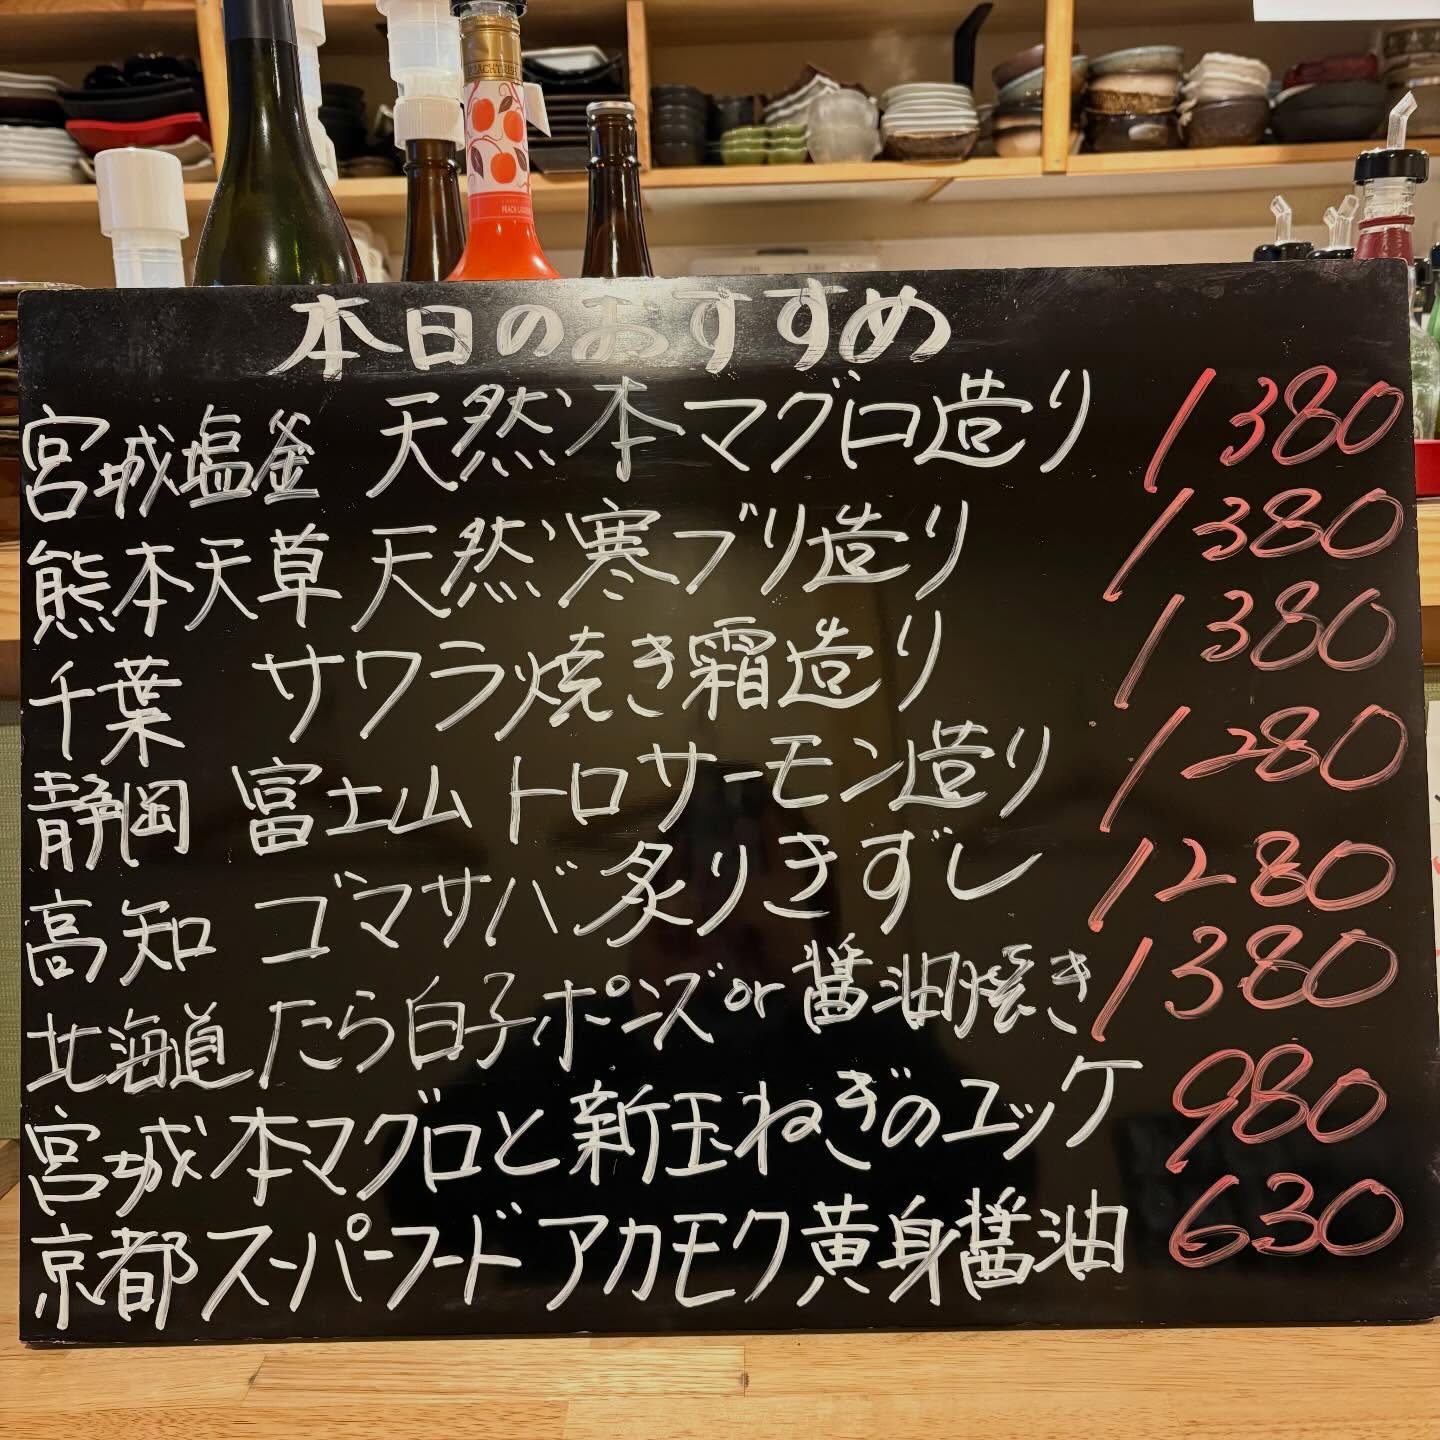 本日のおすすめ
宮城塩釜 天然本マグロ造り 1380
熊本天草 天然寒ブリ造り 1380
千葉 サワラ焼き霜造り 1380
静岡 富士山トロサーモン造り 1280
高知 ゴマサバ炙りきずし 1280
北海道 たら白子ポンズor醤油焼き 1380
宮城 本マグロと新玉ねぎのユッケ 980
京都 スーパーフードアカモク黄身醤油 630